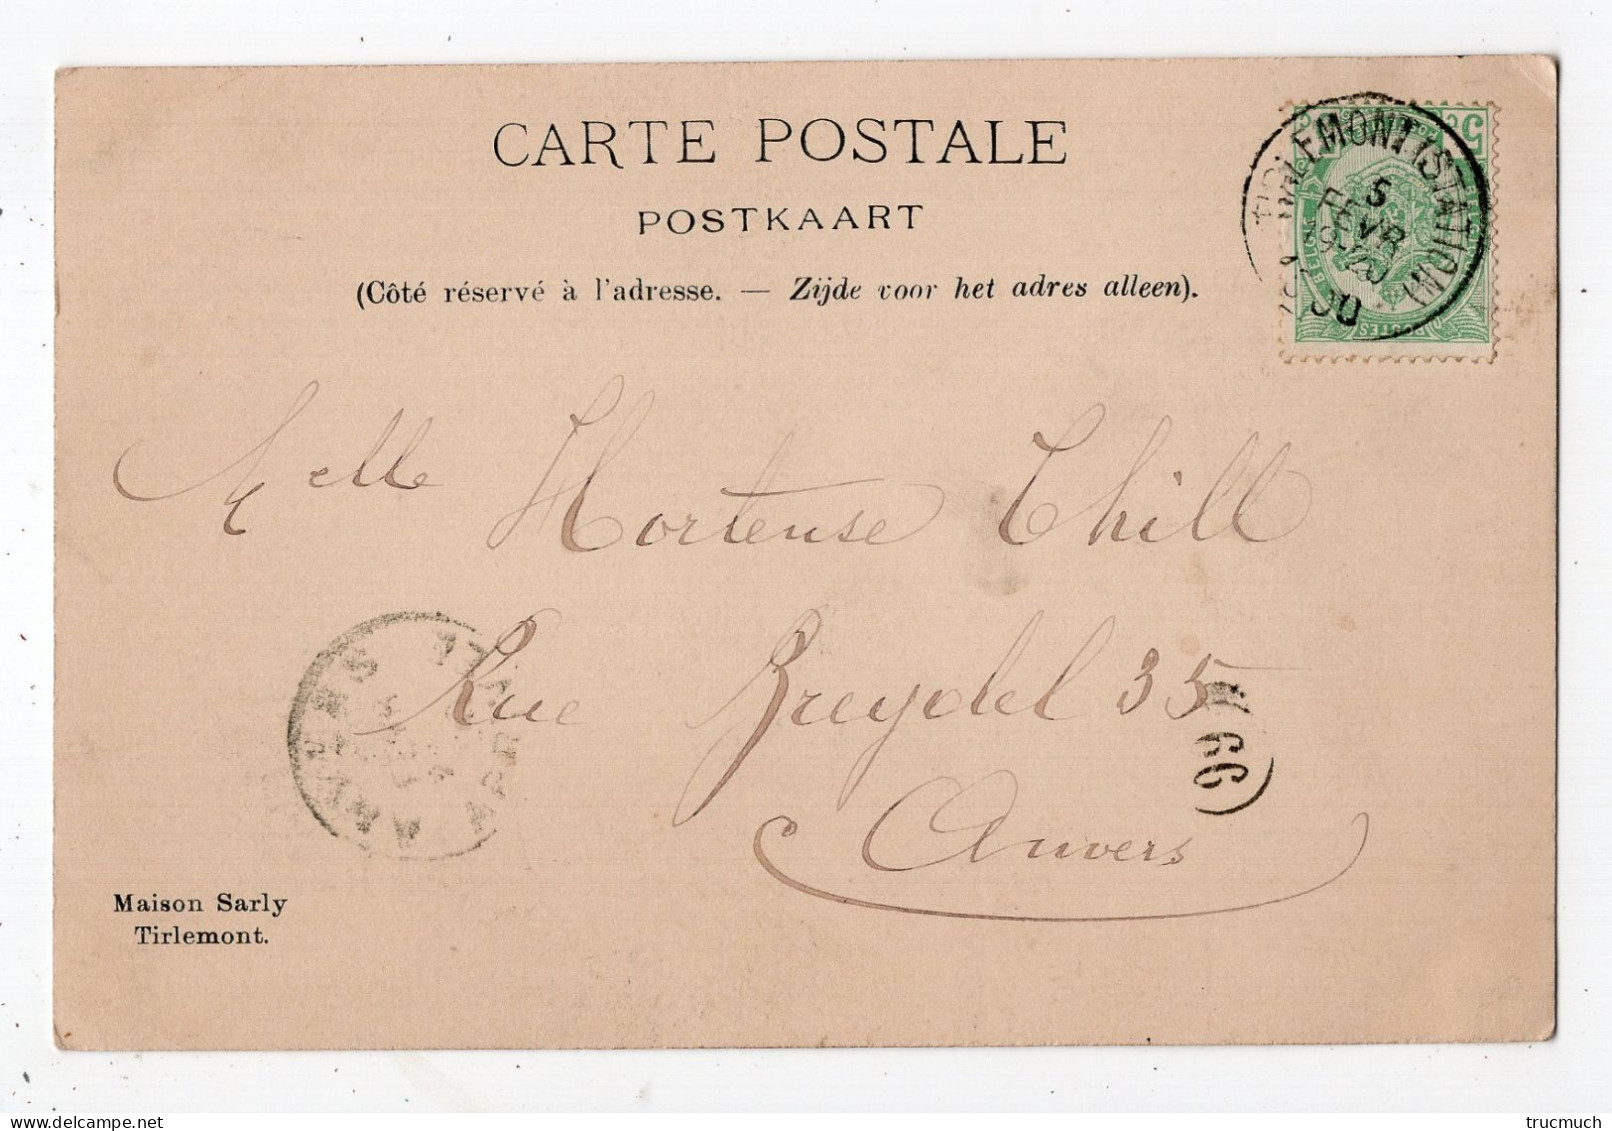 CARTE POSTALE
POSTKAART
(Côté réservé à l'adresse. — Zijde voor het adres alleen).
TIRLEMONT (STATION)
5
FEVR
00
Melle Hortense Thill
Rue Breydel 35
Anvers
66
ANVERS
Maison Sarly
Tirlemont.
trucmuch